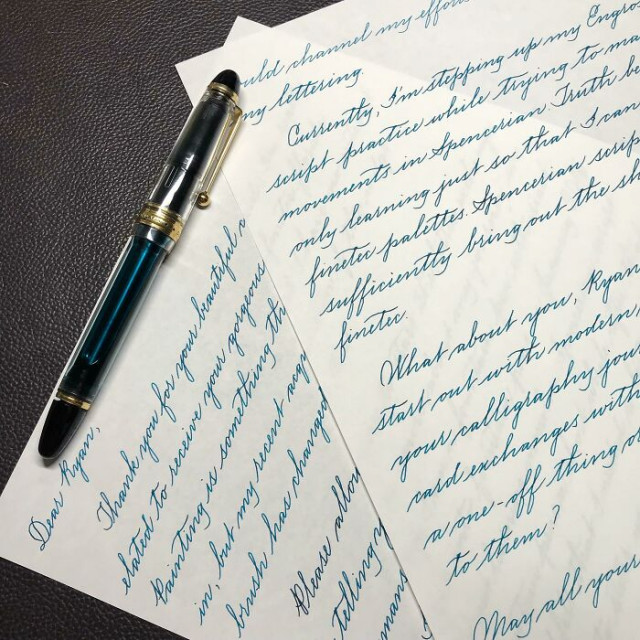 Dear Ryan,
Thank you for your beautiful
elated to receive your gorgeous
Painting is something th
in, but my recent acqu
brush has changed
Please allow
telling y
mans
ould channel my effor
my lettering.
Currently, I'm stepping up my Engro
script practice while trying to ma
movements in Spencerian. Truth be
only learning just so that I can
fineter palettes. Spencerian scrip
sufficiently bring out the sh
fineter.
What about you, Ryan
start out with modern
your calligraphy jou
card exchanges with
a one-off thing o
to them?
May all your